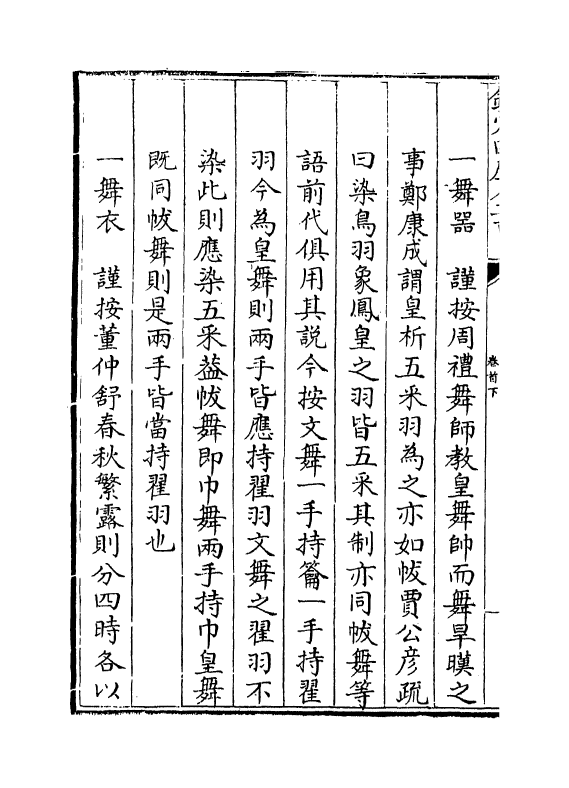 卷首下
一舞器　謹按周禮舞師教皇舞帥而舞旱暵之
事鄭康成謂皇析五采羽為之亦如帗賈公彦疏
曰染鳥羽象鳳皇之羽皆五采其制亦同帗舞等
語前代俱用其説今按文舞一手持籥一手持翟
羽今為皇舞則兩手皆應持翟羽文舞之翟羽不
染此則應染五采葢帗舞即巾舞兩手持巾皇舞
既同帗舞則是兩手皆當持翟羽也
一舞衣　謹按董仲舒春秋繁露則分四時各以